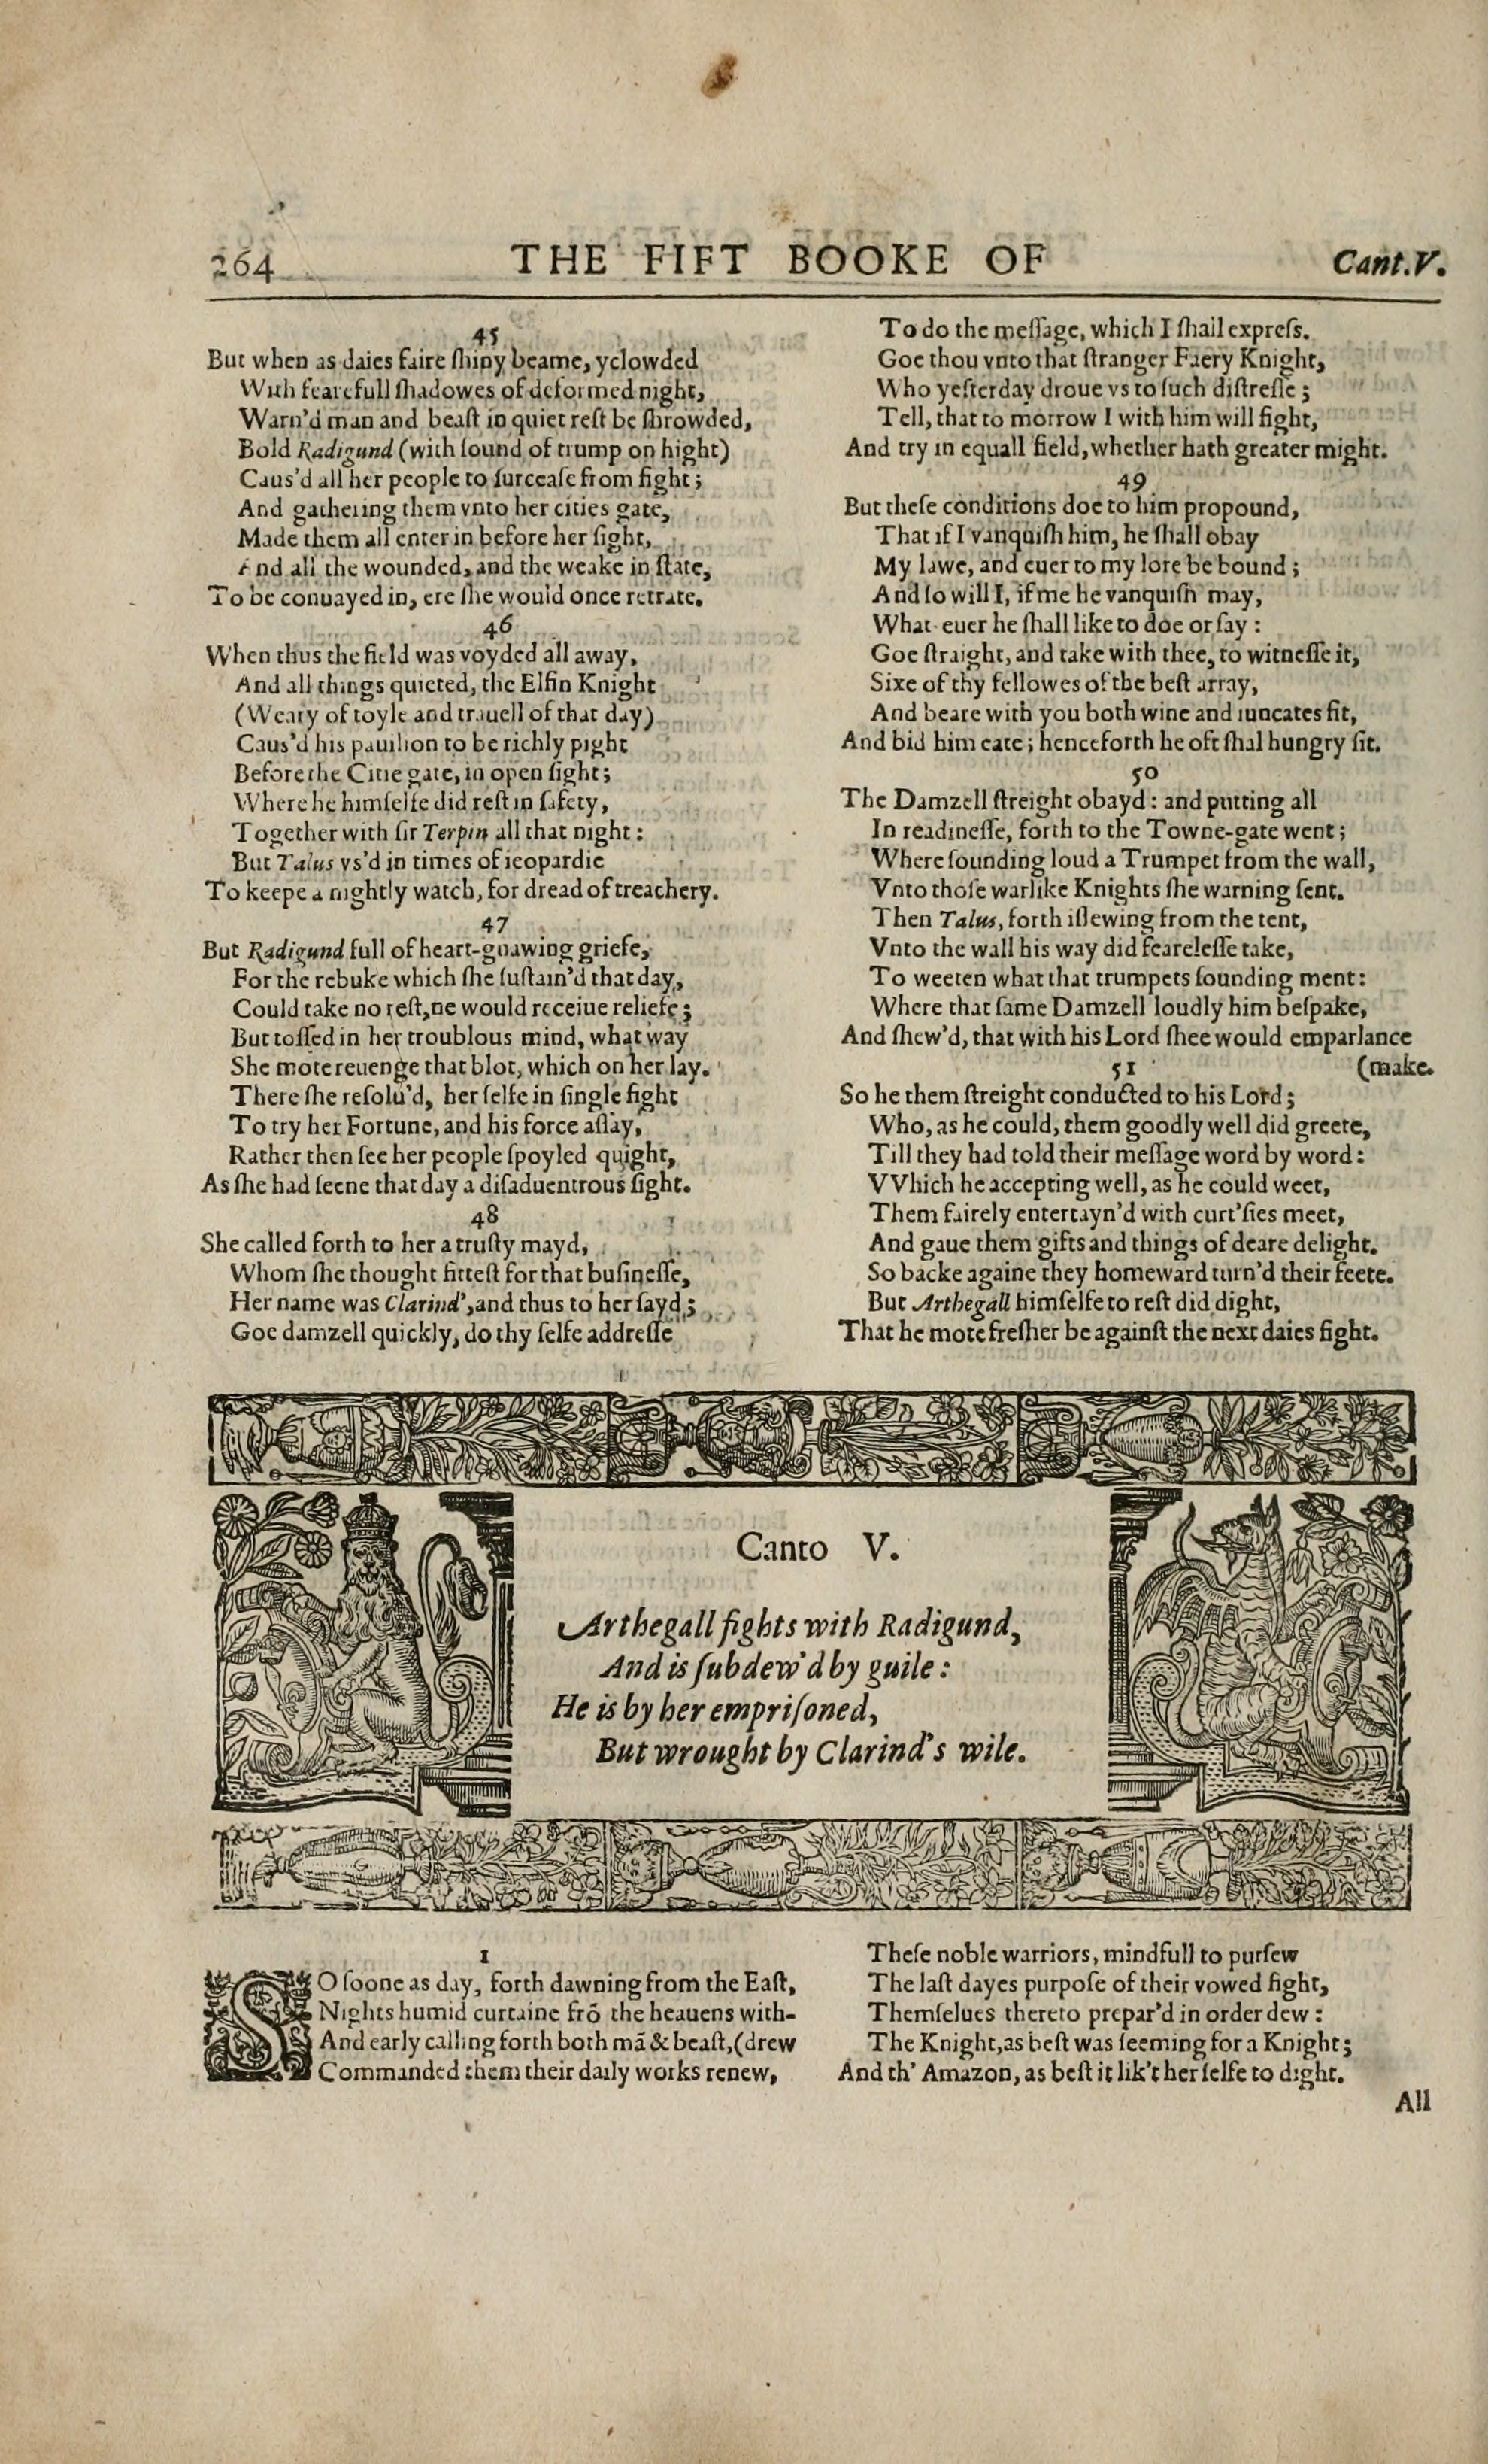 264 THE FIFT BOOKE OF Cant.V.
45
But when as daies faire ſhiny beame, yclowded
With fearefull ſhadowes of deformed night,
Warn'd man and beaſt in quiet reſt be ſhrowded,
Bold Radigund (with ſound of trump on hight)
Caus'd all her people to ſurceaſe from fight;
And gathering them vnto her cities gate,
Made them all enter in before her ſight,
And all the wounded, and the weake in ſtate,
To be conuayed in, ere ſhe would once retrate.
46
When thus the field was voyded all away,
And all things quieted, the Elfin Knight
(Weary of toyle and trauell of that day)
Caus'd his pauilion to be richly pight
Before the Citie gate, in open ſight;
Where he himſelfe did reſt in ſafety,
Together with ſir Terpin all that night:
But Talus vs'd in times of ieopardie
To keepe a nightly watch, for dread of treachery.
47
But Radigund full of heart-gnawing griefe,
For the rebuke which ſhe ſuſtain'd that day,
Could take no reſt, ne would receiue reliefe;
But toſſed in her troublous mind, what way
She mote reuenge that blot, which on her lay.
There ſhe reſolu'd, her ſelfe in ſingle fight
To try her Fortune, and his force aſſay,
Rather then ſee her people ſpoyled quight,
As ſhe had ſeene that day a diſaduentrous ſight.
48
She called forth to her a truſty mayd,
Whom ſhe thought fitteſt for that buſineſſe,
Her name was Clarind', and thus to her ſayd;
Goe damzell quickly, do thy ſelfe addreſſe
To do the meſſage, which I ſhall expreſs.
Goe thou vnto that ſtranger Faery Knight,
Who yeſterday droue vs to ſuch diſtreſſe;
Tell, that to morrow I with him will fight,
And try in equall field, whether hath greater might.
49
But theſe conditions doe to him propound,
That if I vanquiſh him, he ſhall obay
My lawe, and euer to my lore be bound;
And ſo will I, if me he vanquiſh may,
What euer he ſhall like to doe or ſay:
Goe ſtraight, and take with thee, to witneſſe it,
Sixe of thy fellowes of the beſt array,
And beare with you both wine and iuncates fit,
And bid him eate; henceforth he oft ſhal hungry ſit.
50
The Damzell ſtreight obayd: and putting all
In readineſſe, forth to the Towne-gate went;
Where ſounding loud a Trumpet from the wall,
Vnto thoſe warlike Knights ſhe warning ſent.
Then Talus, forth iſſewing from the tent,
Vnto the wall his way did feareleſſe take,
To weeten what that trumpets ſounding ment:
Where that ſame Damzell loudly him beſpake,
And ſhew'd, that with his Lord ſhee would emparlance
51 (make.
So he them ſtreight conducted to his Lord;
Who, as he could, them goodly well did greete,
Till they had told their meſſage word by word:
VVhich he accepting well, as he could weet,
Them fairely entertayn'd with curt'ſies meet,
And gaue them gifts and things of deare delight.
So backe againe they homeward turn'd their feete.
But Arthegall himſelfe to reſt did dight,
That he mote freſher be againſt the next daies fight.
Canto V.
Arthegall fights with Radigund,
And is ſubdew'd by guile:
He is by her empriſoned,
But wrought by Clarind's wile.
1
SO ſoone as day, forth dawning from the Eaſt,
Nights humid curtaine frō the heauens with-
And early calling forth both mā & beaſt, (drew
Commanded them their daily works renew,
Theſe noble warriors, mindfull to purſew
The laſt dayes purpoſe of their vowed fight,
Themſelues thereto prepar'd in order dew:
The Knight, as beſt was ſeeming for a Knight;
And th' Amazon, as beſt it lik't her ſelfe to dight.
All